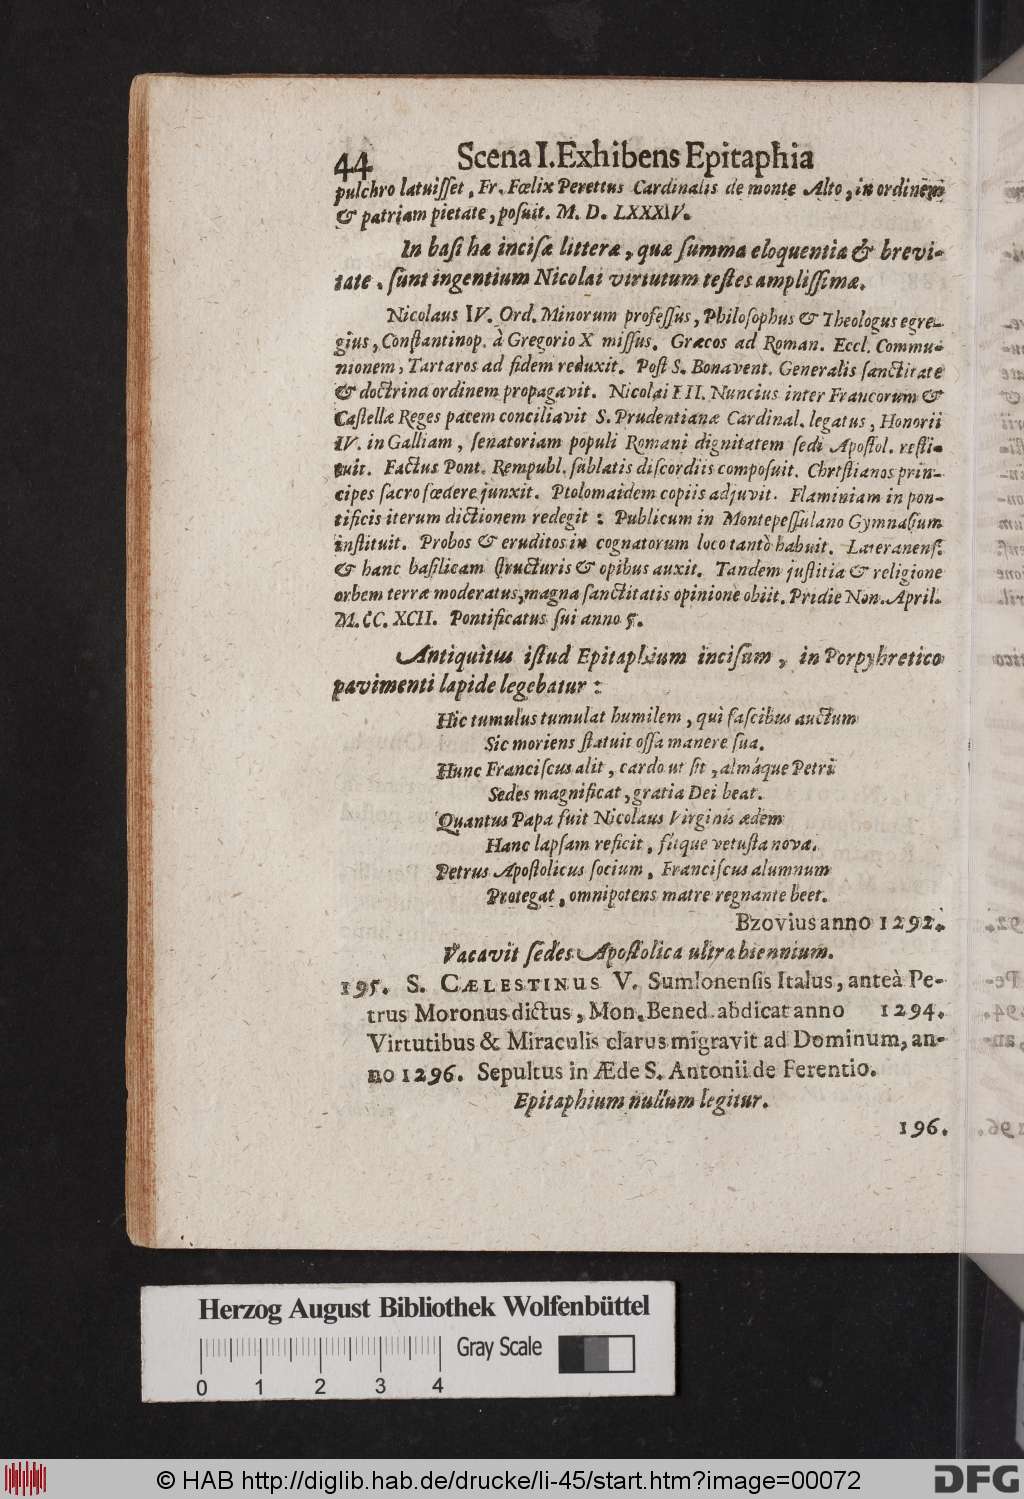 44 Scena I. Exhibens Epitaphia
pulchro latuisset, Fr. Fœlix Perettus Cardinalis de monte Alto, in ordinem
& patriam pietate, posuit. M. D. LXXXIV.
In basi hæ incisæ litteræ, quæ summa eloquentia & brevi-
tate, sunt ingentium Nicolai virtutum testes amplissimæ.
Nicolaus IV. Ord. Minorum professus, Philosophus & Theologus egre-
gius, Constantinop. à Gregorio X missus. Græcos ad Roman. Eccl. Commu-
nionem, Tartaros ad fidem reduxit. Post S. Bonavent. Generalis sanctitate
& doctrina ordinem propagavit. Nicolai III. Nuncius inter Francorum &
Castellæ Reges pacem conciliavit S. Prudentianæ Cardinal. legatus, Honorii
IV. in Galliam, senatoriam populi Romani dignitatem sedi Apostol. resti-
tuit. Factus Pont. Rempubl. sublatis discordiis composuit. Christianos prin-
cipes sacro fœdere junxit. Ptolomaidem copiis adjuvit. Flaminiam in pon-
tificis iterum dictionem redegit : Publicum in Montepessulano Gymnasium
instituit. Probos & eruditos in cognatorum loco tantò habuit. Lateranens.
& hanc basilicam structuris & opibus auxit. Tandem justitia & religione
orbem terræ moderatus, magna sanctitatis opinione obiit. Pridie Non. April.
M. CC. XCII. Pontificatus sui anno 5.
Antiquitus istud Epitaphium incisum, in Porpyhretico
pavimenti lapide legebatur :
Hic tumulus tumulat humilem, qui fascibus auctum
Sic moriens statuit ossa manere sua.
Hunc Franciscus alit, cardo ut sit, almáque Petri
Sedes magnificat, gratia Dei beat.
Quantus Papa fuit Nicolaus Virginis ædem
Hanc lapsam reficit, fitque vetusta nova.
Petrus Apostolicus socium, Franciscus alumnum
Protegat, omnipotens matre regnante beet.
Bzovius anno 1292.
Vacavit sedes Apostolica ultra biennium.
195. S. CÆLESTINUS V. Sumlonensis Italus, anteà Pe-
trus Moronus dictus, Mon. Bened. abdicat anno 1294.
Virtutibus & Miraculis clarus migravit ad Dominum, an-
no 1296. Sepultus in Æde S. Antonii de Ferentio.
Epitaphium nullum legitur.
196.
Herzog August Bibliothek Wolfenbüttel
Gray Scale
0 1 2 3 4
© HAB http://diglib.hab.de/drucke/li-45/start.htm?image=00072
DFG